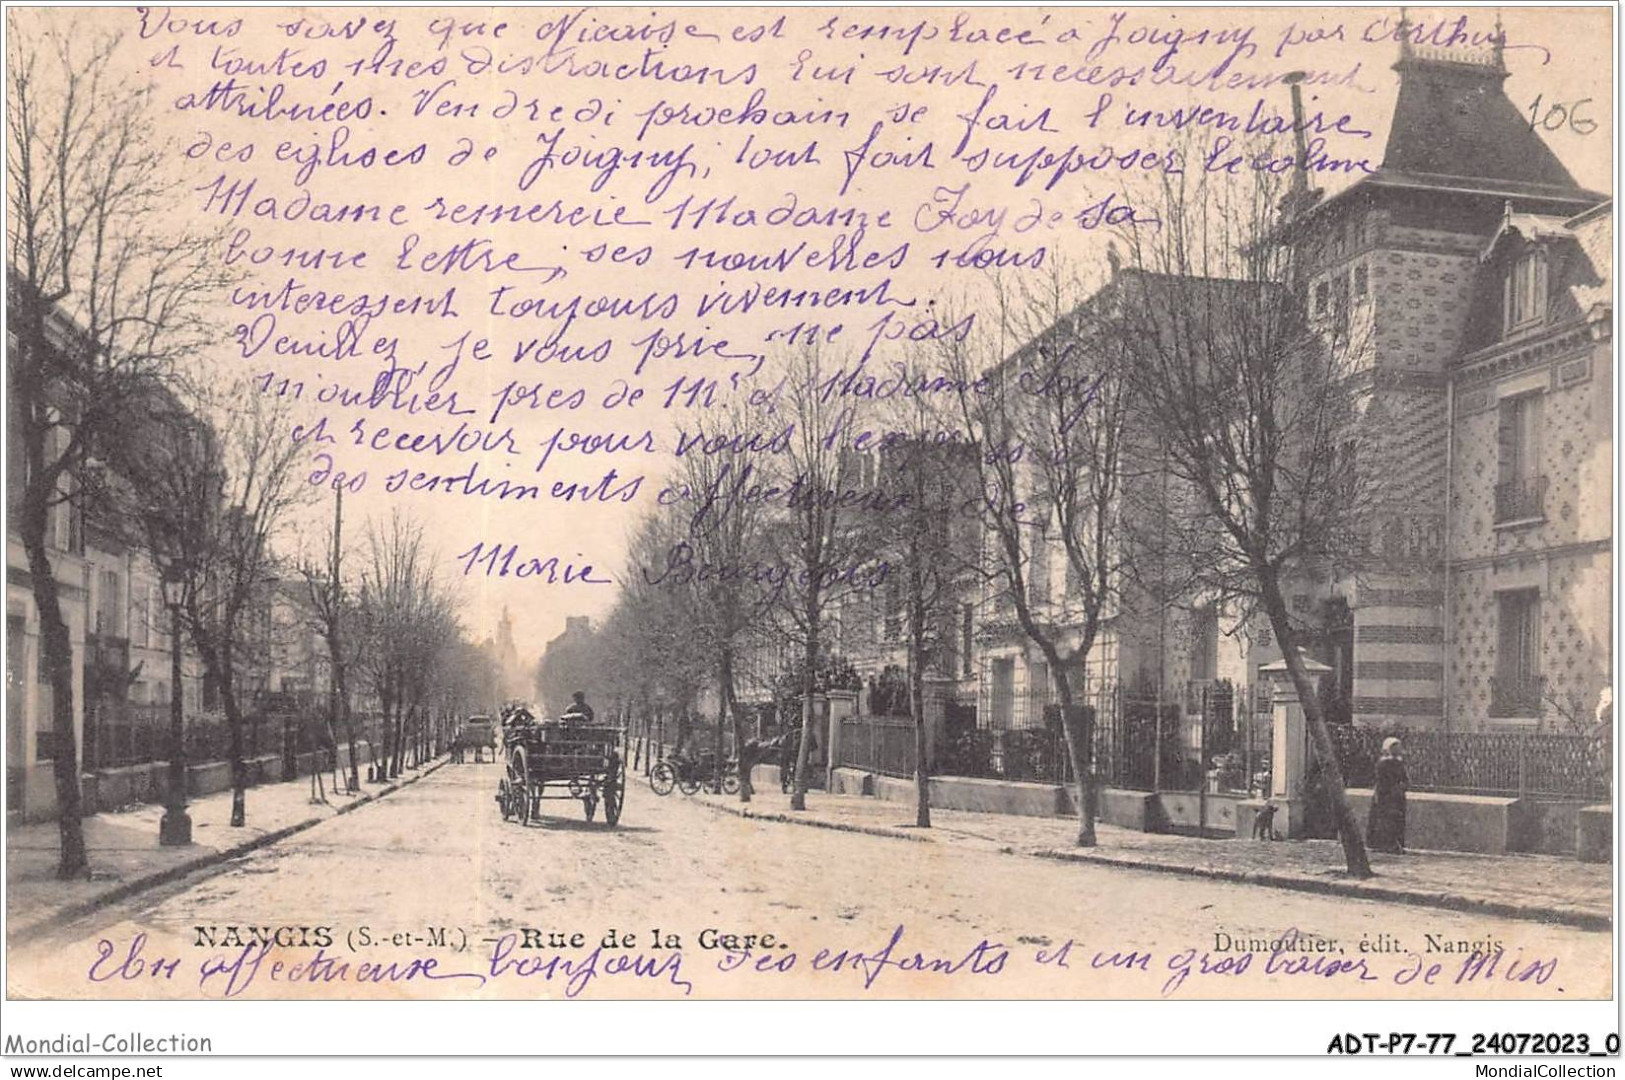 Vous savez que Nicaise est remplacé à Joigny par Arthur
et toutes mes distractions lui sont necessairement
attribuées. Vendredi prochain se fait l'inventaire
des eiglises de Joigny; tout fait supposer le calme
Madame remercie Madame Joy de sa
bonne lettre; ses nouvelles nous
interessent toujours vivement.
Veuillez, je vous prie, ne pas
m'oublier pres de Mr. et Madame Joy
et recevoir pour vous l'expressio
des sentiments affectueux de
Marie Bourgeois
106
NANGIS (S.-et-M.) — Rue de la Gare.
Dumoutier, édit. Nangis
Un affectueux bonjour des enfants et un gros baiser de Miss.
Mondial-Collection
ADT-P7-77_24072023_0
Mondial-Collection.net
MondialCollection